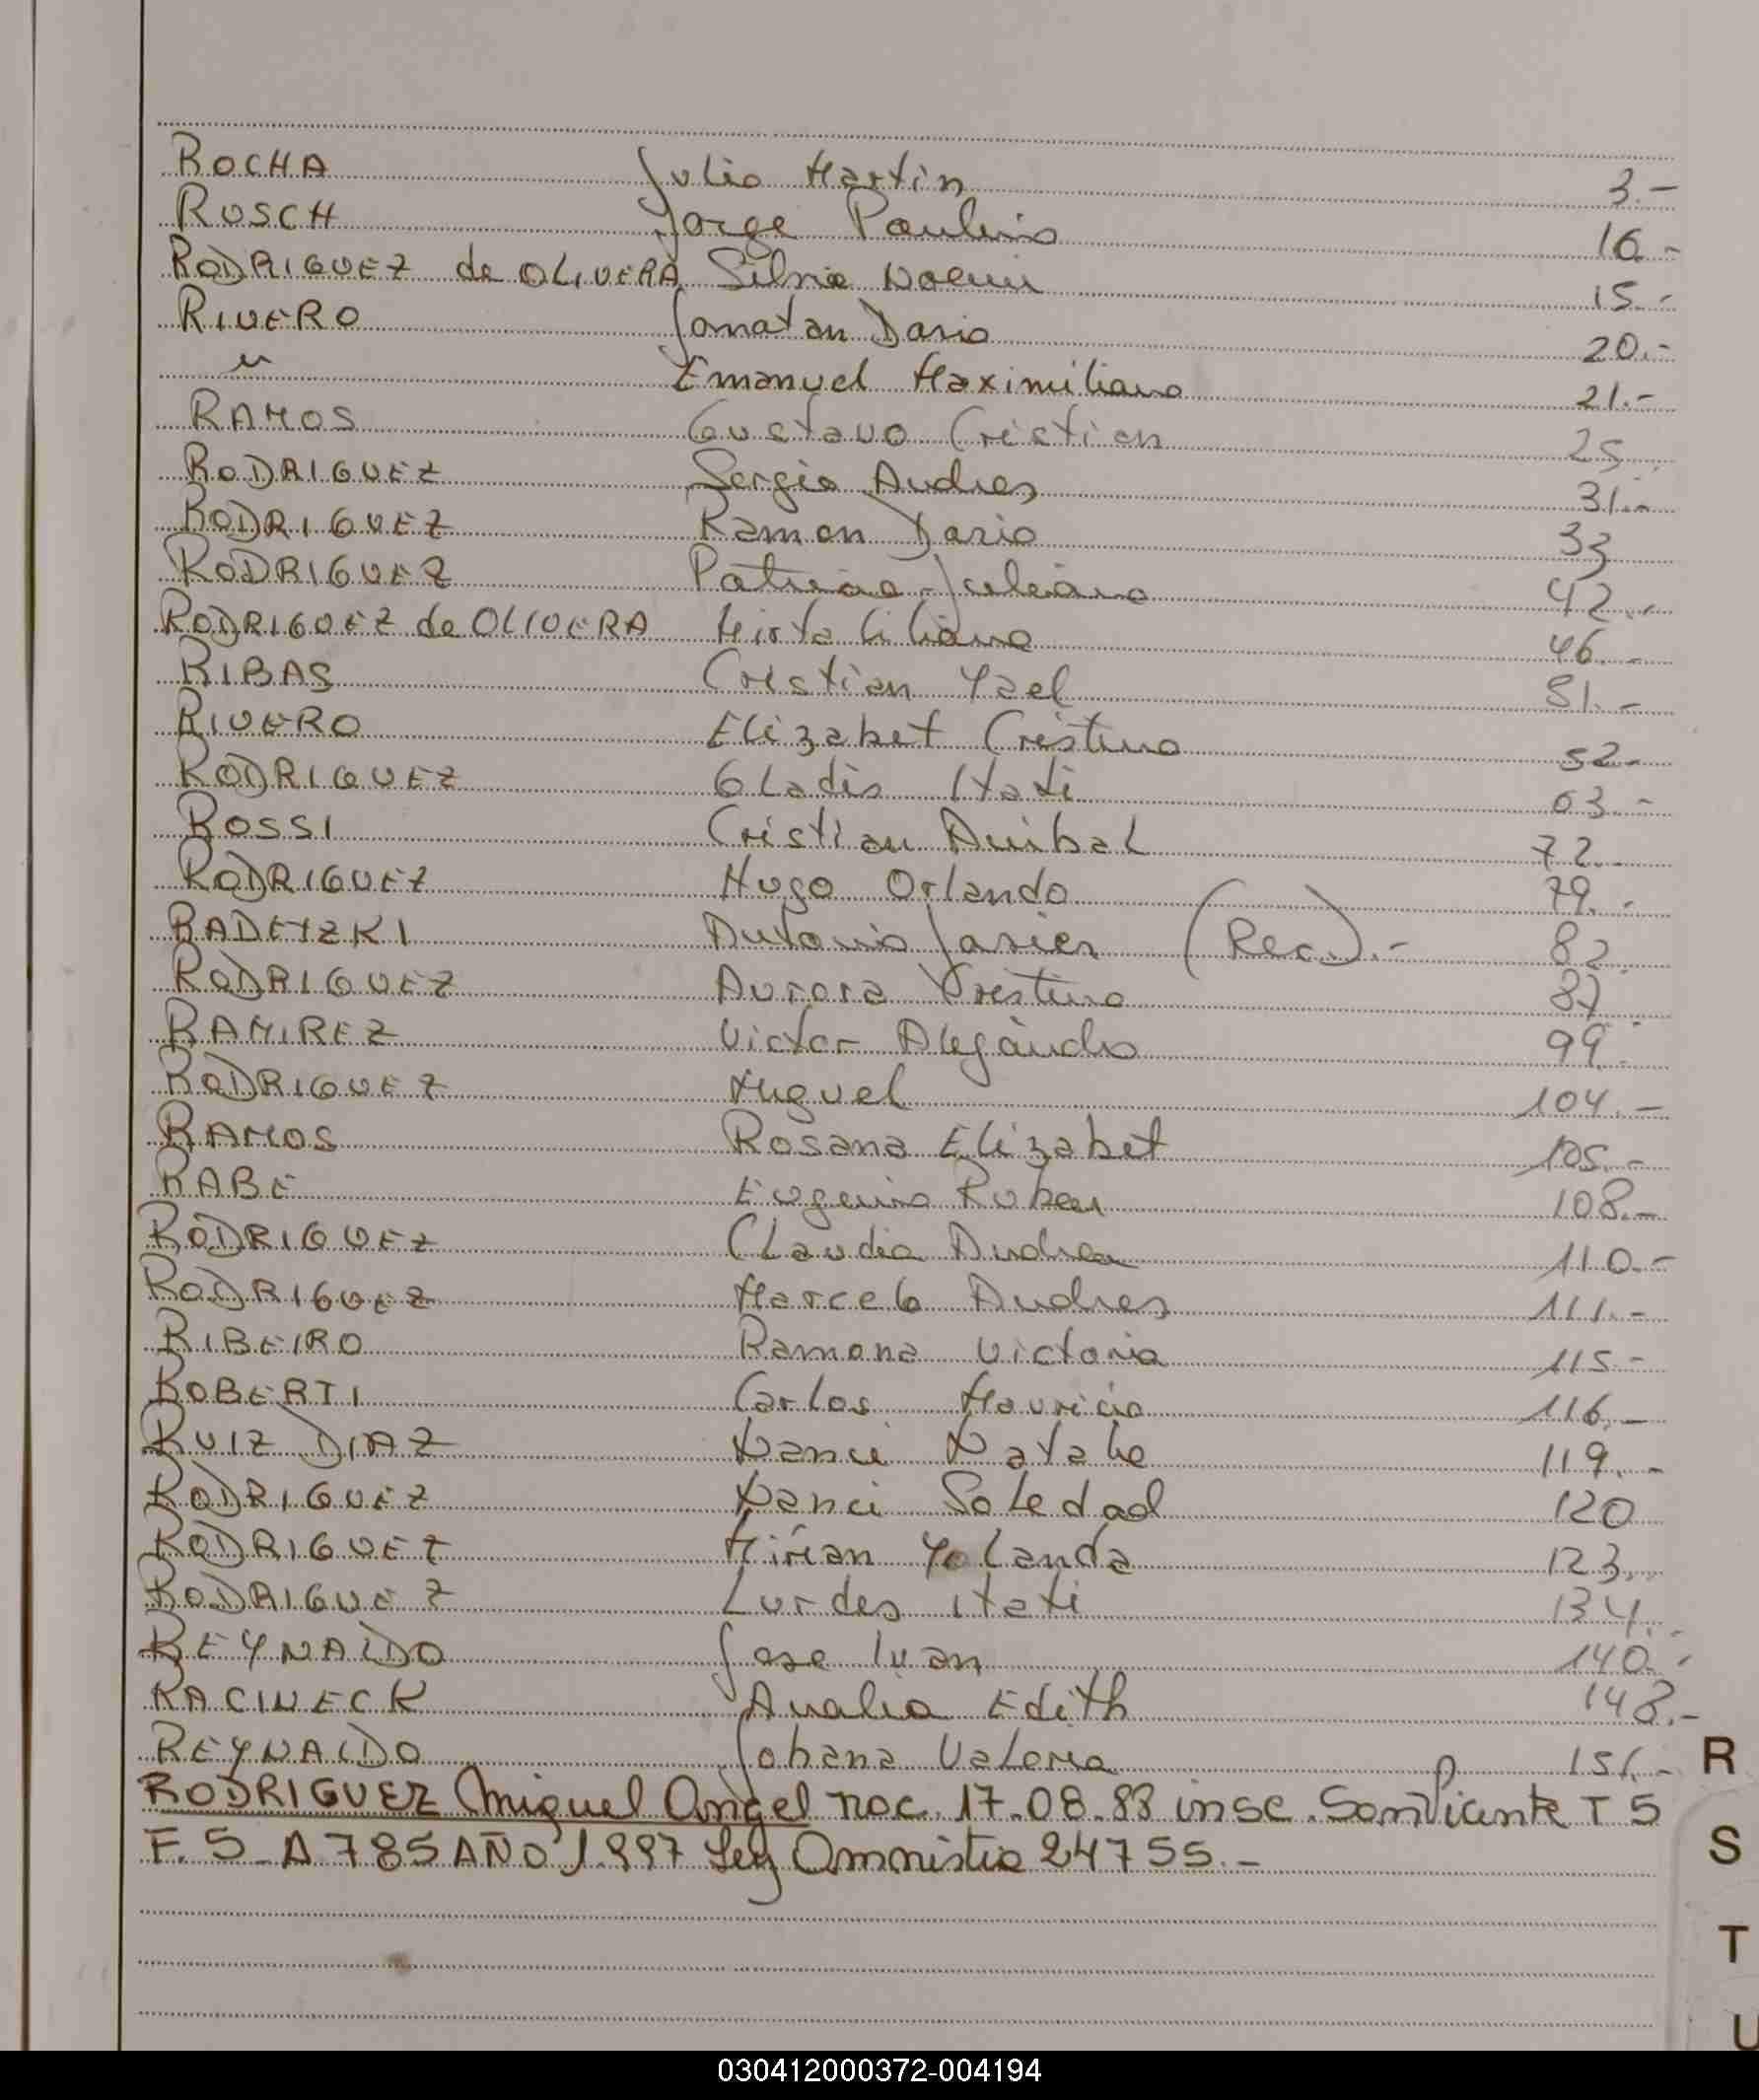 ROCHA Julio Martin 3.-
RUSCH Jorge Paulino 16.-
RODRIGUEZ de OLIVERA Silvia Noemi 15.-
RIVERO Jonatan Dario 20.-
" Emanuel Maximiliano 21.-
RAMOS Gustavo Cristian 25.-
RODRIGUEZ Sergio Andres 31.-
RODRIGUEZ Ramon Dario 33
RODRIGUEZ 42.-
RODRIGUEZ de OLIVERA Mirta Liliana 46.-
RIBAS Cristian Yael 51.-
RIVERO Elizabet Cristina 52-
RODRIGUEZ Gladis Itati 63.-
ROSSI Cristian Anibal 72.-
RODRIGUEZ Hugo Orlando 79.-
RADETZKI Antonio Javier (Rec).- 82.
RODRIGUEZ Aurora Cristina 87.
RAMIREZ Victor Alejandro 99.-
RODRIGUEZ Miguel 104.-
RAMOS Rosana Elizabet 105.-
RABE Eugenio Ruben 108.-
RODRIGUEZ Claudia Andrea 110.-
RODRIGUEZ Marcelo Andres 111.-
RIBEIRO Ramona Victoria 115-
ROBERTI Carlos Mauricio 116.-
RUIZ DIAZ Nanci Natalie 119.-
RODRIGUEZ Nanci Soledad 120
RODRIGUEZ Mirian Yolanda 123.-
RODRIGUEZ Lurdes Itati 134.-
REYNALDO Jose Ivan 140.-
RACINECK Analia Edith 148.-
REYNALDO Johana Valeria 151.- R
RODRIGUEZ Miguel Angel nac. 17-08-88 insc. San Vicente T 5
F. 5 A 785 AÑO 1.997 Ley Amnistia 24755.- S
T
U
030412000372-004194